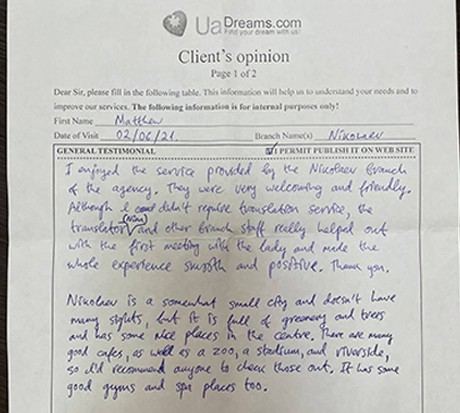 UaDreams.com
Find your dream with us!
Client's opinion
Page 1 of 2
Dear Sir, please fill in the following table. This information will help us to understand your needs and to
improve our services. The following information is for internal purposes only!
First Name Matthew
Date of Visit 02/06/21. Branch Name(s) Nikolaev
GENERAL TESTIMONIAL I PERMIT PUBLISH IT ON WEB SITE
I enjoyed the service provided by the Nikolaev Branch
of the agency. They were very welcoming and friendly.
Although I didn't require translation service, the
translator (Nina) and other branch staff really helped out
with the first meeting with the lady and made the
whole experience smooth and positive. Thank you.
Nikolaev is a somewhat small city and doesn't have
many sights, but it is full of greenery and trees
and has some nice places in the centre. There are many
good cafes, as well as a zoo, a stadium, and riverside,
so I'd recommend anyone to check those out. It has some
good gyms and spa places too.